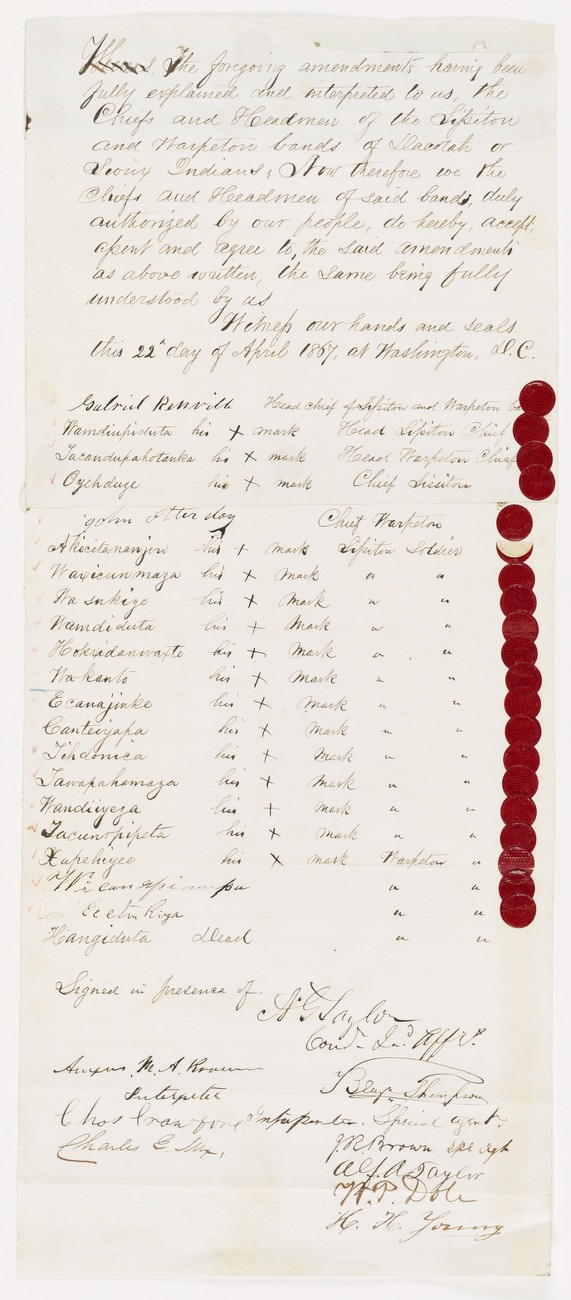 Whereas, The foregoing amendments having been
fully explained and interpreted to us, the
Chiefs and Headmen of the Sissiton
and Warpeton bands of Dacotah or
Sioux Indians, Now therefore we the
Chiefs and Headmen of said bands, duly
authorized by our people, do hereby, accept,
and agree to, the said amendments
as above written, the same being fully
understood by us
Witness our hands and seals
this 22d day of April 1867, at Washington, D.C.
Gabriel Renville Head chief of Sissiton and Warpeton
Wamdiupiduta his X mark Head Sissiton Chief
Tacandupahotanka his X mark Head Warpeton Chief
Oyehduze his X mark Chief Sissiton
John Otter day Chief Warpeton
Akicitananjin his + mark Sissiton Soldier
Waxicunmaza his X mark " "
Wasukiye his X mark " "
Wamdiduta his X mark " "
Hokxidanwaxte his X mark " "
Wakanto his X mark " "
Ecanajinke his X mark " "
Canteiyapa his X mark " "
Tihdonica his X mark " "
Tawapahamaza his X mark " "
Wandiiyeza his + mark " "
Tacunrpipeta his X mark " "
Xupehiyee his X mark Warpeton "
Wicanrpinupa " "
Ecetukiya " "
Hangiduta Dead " "
Signed in presence of
N G Taylor
Com. Ind Affrs.
M. A. Brown
Interpreter
Benj. Thompson
Chas Crawford Interpreter Special agent.
Charles E. Mix,
J. R. Brown Spe Agt
Alf. A Taylor
W. P. Dole
H. H. Young